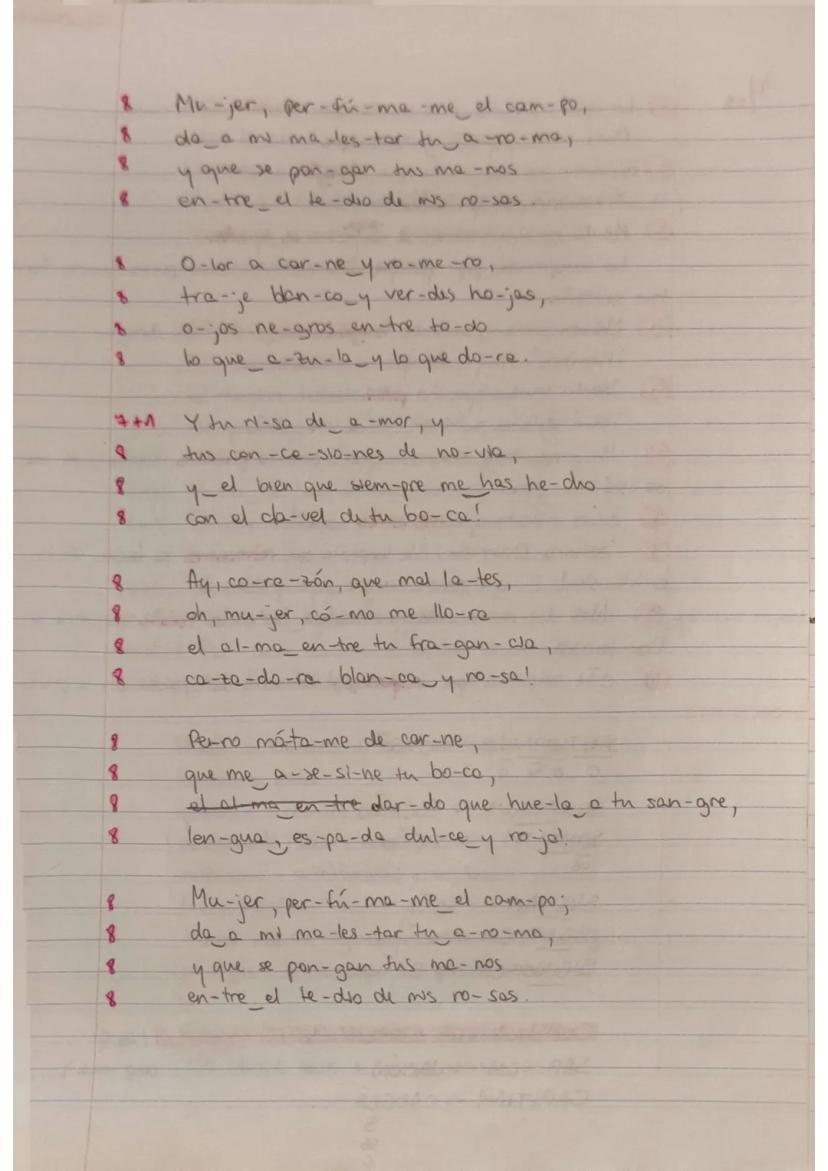 8 Mu-jer, per-fú-ma-me_el cam-po,
8 da_a mi ma-les-tar tu_a-ro-ma,
8 y que se pon-gan tus ma-nos
8 en-tre_el te-dio de mis ro-sas.
8 O-lor a car-ne_y ro-me-ro,
8 tra-je blan-co_y ver-des ho-jas,
8 o-jos ne-gros en-tre to-do
8 lo que_a-zu-la_y lo que do-ra.
7+1 Y tu ri-sa de_a-mor, y
8 tus con-ce-sio-nes de no-via,
8 y_el bien que siem-pre me_has he-cho
8 con el cla-vel de tu bo-ca!
8 Ay, co-ra-zón, que mal la-tes,
8 oh, mu-jer, có-mo me llo-ra
8 el al-ma_en-tre tu fra-gan-cia,
8 ca-za-do-ra blan-ca_y ro-sa!
8 Pe-ro máta-me de car-ne,
8 que me_a-se-si-ne tu bo-ca,
8 el al-ma en tre dar-do que hue-la_a tu san-gre,
8 len-gua_, es-pa-da dul-ce_y ro-ja!
8 Mu-jer, per-fú-ma-me_el cam-po;
8 da_a mi ma-les-tar tu_a-ro-ma,
8 y que se pon-gan tus ma-nos
8 en-tre_el te-dio de mis ro-sas.